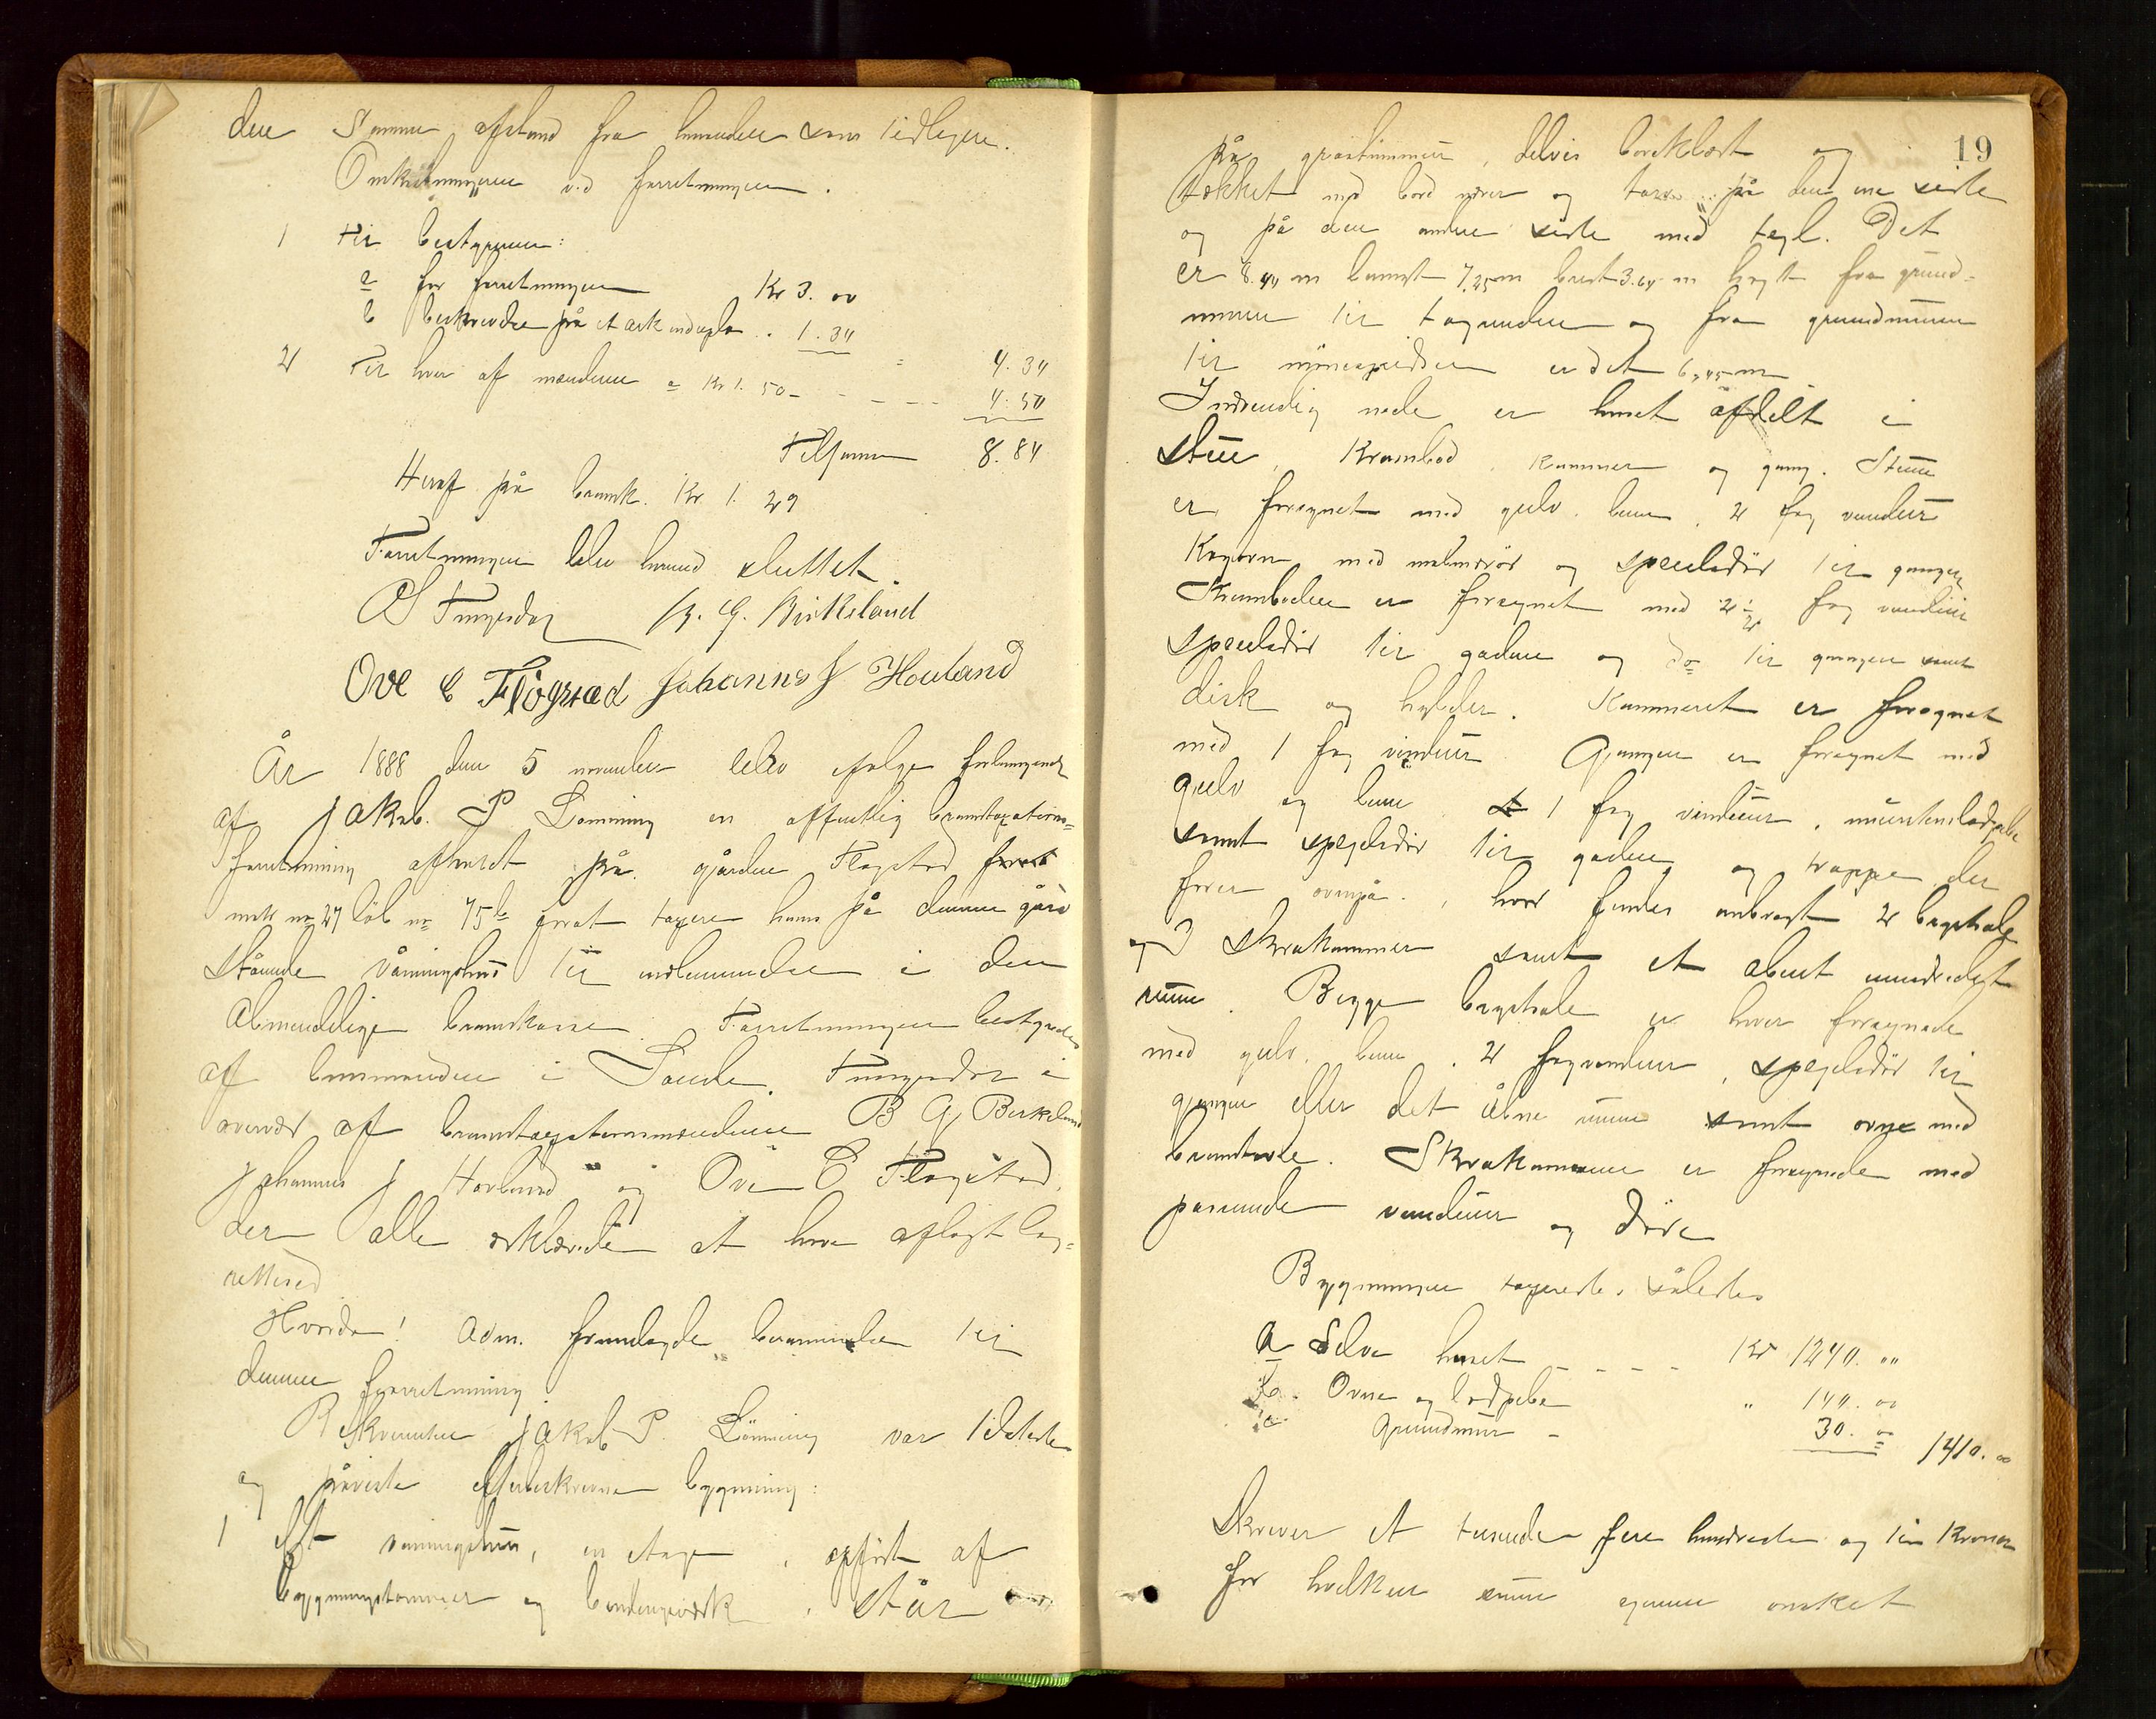 den samme afstand fra hinanden som tidligere.
Omkostningerne ved forretningen.
1 Til bestyreren:
a for forretningen Kr 3.00
b beskrivelse på et ark . 1.34
4.34
2 Til hver af mændene a Kr 1.50 - - - - 4.50
Tilsammen 8.84
Heraf på bramk. Kr. 1. 29
Forretningen blev hermed sluttet.
B. G. Birkeland
Ove E Fløgstad Johannes J Hovland
År 1888 den 5 november blev ifølge forlangende
af Jakob. P Lønning en offentlig branntaxations=
forretning afholdt på gården Fløgstad
matr no 27 løb no 75b forat taxere hans på denne gård
stående våningshus til indlemmelse i den
Almindelige brannkasse. Forretningen bestyredes
af lensmanden i Sande. i
overvær af branntaxationsmændene B G Birkeland
Johannes J Hovland og Ove E Fløgstad,
der alle erklærede at have aflagt lag=
rettesed
Hvorda! Adm. fremlagde berammelse til
denne forretning
Rekvirenten Jakob P. Lønning var tilstede
og påviste efterbeskrevne bygning:
1 Et våningshus, en etage, opført af
bygningstømmer og bindingsværk, står
19
på gråstensmur, delvis bordklædt og
tækket med bord næver og torv på den ene side
og på den anden side med tegl. Det
er 8.40 m langt 7,25 m bredt 3.64 m høyt fra grund-
muren til tagrenden og fra grundmuren
til mønespidsen er det 6,45 m
Indvendig nede er huset afdelt i
stue, Krambod, Kammer og gang. Stuen
er forsynet med gulv, , 2 fag vinduer
Kogovn med rør og speildør til gangen
Kramboden er forsynet med 2 1/2 fag vinduer
speildør til gaden og do til gangen samt
disk og hylder. Kammeret er forsynet
med 1 fag vinduer Gangen er forsynet med
gulv og 1 fag vinduer,
samt speildør til gaden og trappe der
fører ovenpå, hvor findes anbragt 2 kvistsale
og 3 skråkammer samt et åbent uindredet
rum. Begge kvistsale er hver forsynede
med gulv, , 2 fag vinduer, speildør til
gangen eller det åbne rum samt ovne med
. Skråkammerne er forsynede med
passende vinduer og døre
Bygningen taxeredes således
a Selve huset - - - - Kr 1240. "
b. Ovne og ledpibe " 140. 00
c Grundmur - 30. 00 1410.00
Skriver et tusende fire hundrede og ti Kroner
for hvilken sum eieren ønsket